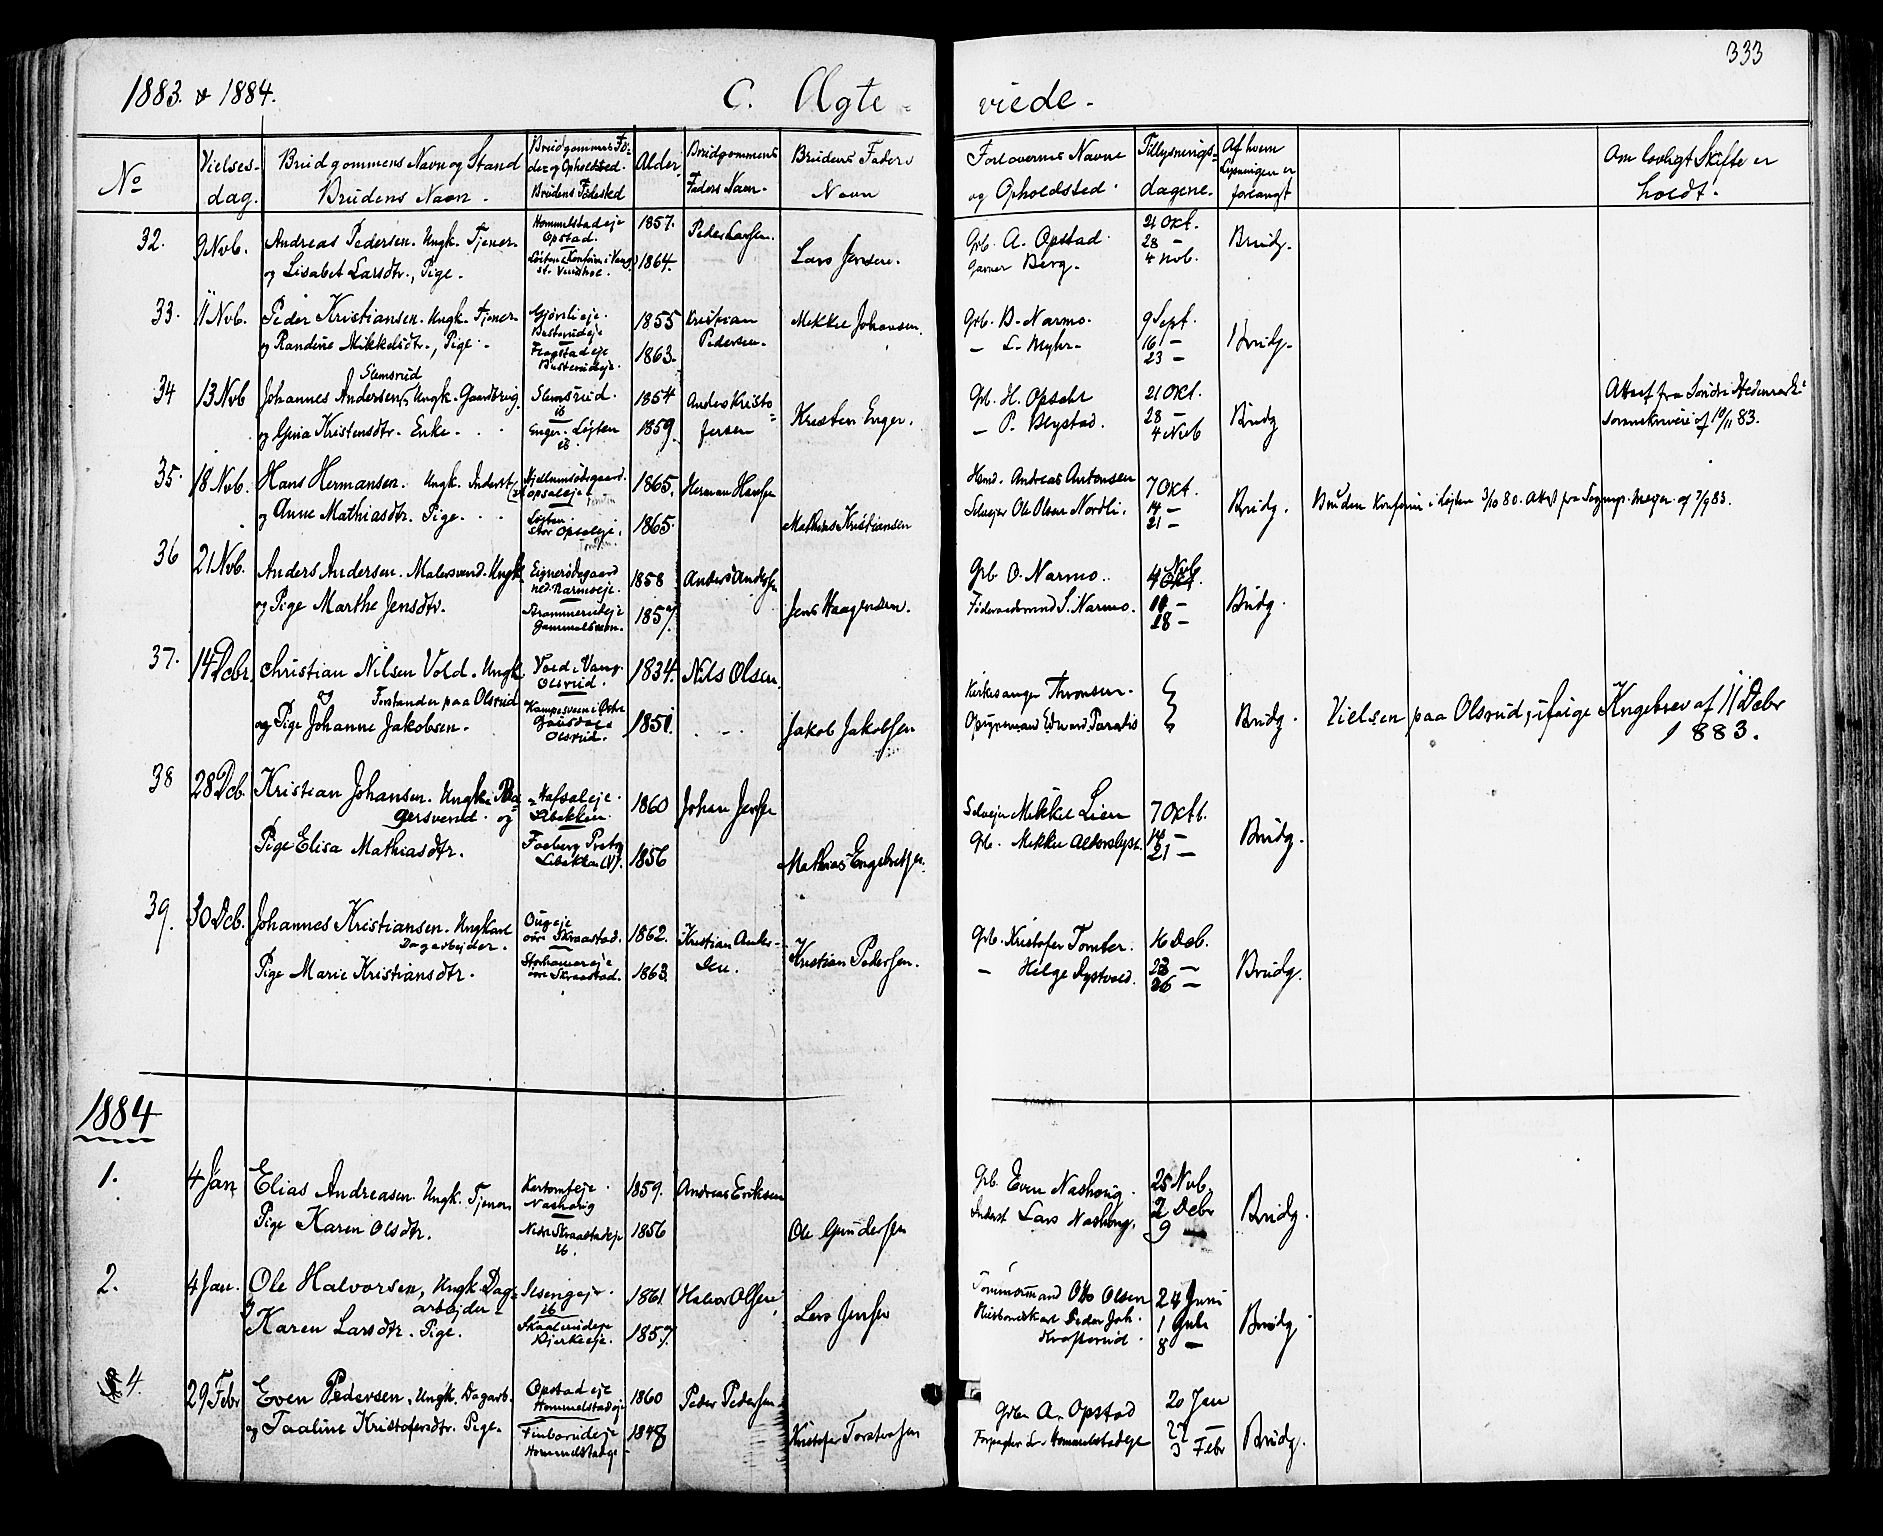 333
1883. & 1884. C. Ægte - viede -
No
Vielses-
dag.
Brudgommens Navn og Stand
Brudens Navn -
Brudgommens Fø-
de og Opholdsted.
Brudens Fødested
Alder
Brudgommens
Faders Navn -
Brudens Faders
Navn
Forlovernes Navne
og Opholdsted
Tillysnings-
dagene.
Af hvem
Lysningen er
forlangt
Om lovligt Skifte er
holdt.
32. 9 Nvb. Andreas Pedersen. Ungk. Tjener
og Lisabet Larsdtr., Pige.
Hommelstadeje
Opstad.
1857.
1864.
Peder Larsen.
Lars Jensen.
Grb. A. Opstad
Berg.
21 Okt.
28 -
4 Nvb.
Brudg.
33. 11 Nvb. Peder Kristiansen. Ungk. Tjener
og Randine Mikkelsdtr., Pige.
Gjørslieje
Flagstadeje
1855
1863.
Kristian
Pedersen.
Mikkel Johansen.
Grb. B. Narmo.
- L. Myhr.
9 Sept.
16 -
23 -
Brudg.
34 13 Nvb
Slemsrud
Johannes Andersen, Ungk. Gaardbrug.
og Gina Kristensdtr. Enke.
Slemsrud.
ib
Enger. Løiten
ib
1854
1859.
Anders Kristo-
fersen
Kristen Enger.
Grb. H. Opsahl
- P. Blystad.
21 Okt.
28 -
4 Nvb
Brudg
Attest fra Søndre Hedemark
Sorenskriveri af 10/11 83.
35. 18 Nvb. Hans Hermansen. Ungk. Inderst
og Anne Mathiasdtr. Pige.
Opsaleje
Løiten
Stor Opsaleje
1865.
1865.
Herman Hansen
Mathias Kristiansen
Hmd. Andreas Antonsen
Selvejer Ole Olsen Nordli.
7 Okt.
14 -
21 -
Brudg.
Bruden Konfirm. i Løiten 3/10 80. Attest fra Sognepr. Meyer af 7/9 83.
36 21 Nvb. Anders Andersen. Malersvend. Ungk
og Pige Marthe Jensdtr.
Eignerødegaard
ned. Narmoeje.
Strammerudeje
1858
1857.
Anders Andersen
Jens Haagensen.
Grb O. Narmo.
Føderaadsmand S. Narmo.
4 Nvb.
11 -
18 -
Brudg.
37. 14 Dcbr. Christian Nilsen Vold. Ungk
og Forstander paa Olsrud
og Pige Johanne Jakobsen.
Vold i Vang.
Olsrud.
Gausdal
Olsrud.
1834.
1851.
Nils Olsen.
Jakob Jakobsen
Kirkesanger Thronsen.
Opsynsmand Edward Paradis
Brudg.
Vielsen paa Olsrud, ifølge Kngebrev af 11 Debr
1883.
38 28 Dcb. Kristian Johansen. Ungk. Ba-
gersvend. og
Pige Elisa Mathiasdtr.
Hafsaleje
Libakken
Faaberg Prstg
Libakken (V).
1860
1856
Johan Jensen
Mathias Engebretsen.
Selvejer Mikkel Lien
Grb. Mikkel
7 Oktb.
14 -
21 -
Brudg.
39. 30 Dcb. Johannes Kristiansen. Ungkarl
Dagarbejder.
Pige Marie Kristiansdtr.
øvre Skraastad.
Storhamareje
øvre Skraastad.
1862.
1863.
Kristian Ander-
sen.
Kristian Pedersen.
Grb. Kristofer Tomter.
- Helge Dystvold.
16 Dcb.
23 -
26 -
Brudg.
1884
1. 4 Jan Elias Andreasen. Ungk. Tjener
Pige Karen Olsdtr.
Nashoug
Nedre Skraastadeje
ib.
1859.
1856
Andreas Eriksen
Ole Gundersen
Grb. Even Nashoug.
Inderst Lars Nashoug.
25 Nvb.
2 Debr
9 -
Brudg.
2. 4 Jan. Ole Halvorsen, Ungk. Dag-
arbejder
og Karen Larsdtr. Pige.
Ilsengeje
ib
Bjerkeeje.
1861
1857
Halvor Olsen
Lars Jensen
Tømmermand Otto Olsen
Peder Joh.
24 Juni
1 Juli
8 -
Brudg.
4. 29 Febr Even Pedersen. Ungk. Dagarb.
og Taaline Kristofersdtr. Pige.
Opstadeje
Hommelstadeje
Finborudeje
Hommelstadeje
1860
1848
Peder Pedersen
Kristofer Torstensen
Grbr. A. Opstad
Forpagter L. Hommelstadeje
20 Jan
27 -
3 Febr
Brudg.